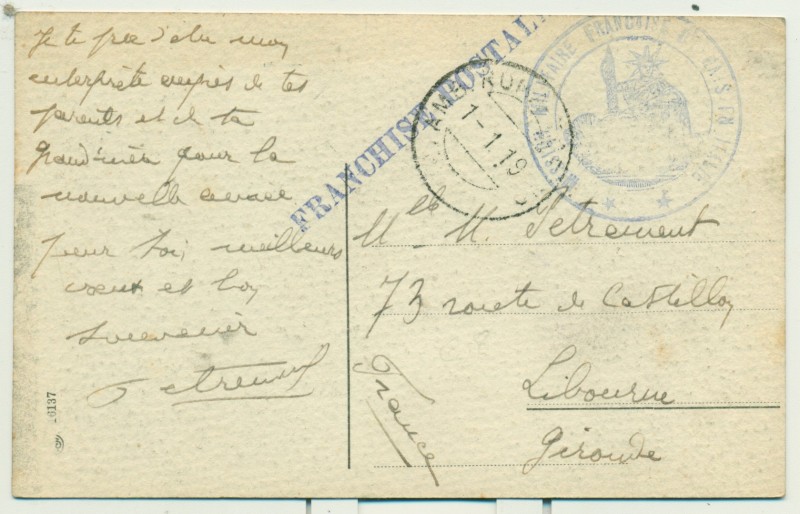 Je te prie d'être mon
interprète auprès de tes
parents et de ta
grand'mère pour la
nouvelle année
pour toi, meilleurs
vœux et bon
souvenir
Petrement
FRANCHISE POSTAL
1-1.19
MILITAIRE FRANÇAISE DE EN ITALIE
Mlle M. Petrement
73 route de Castillon
Libourne
Gironde
France
6137